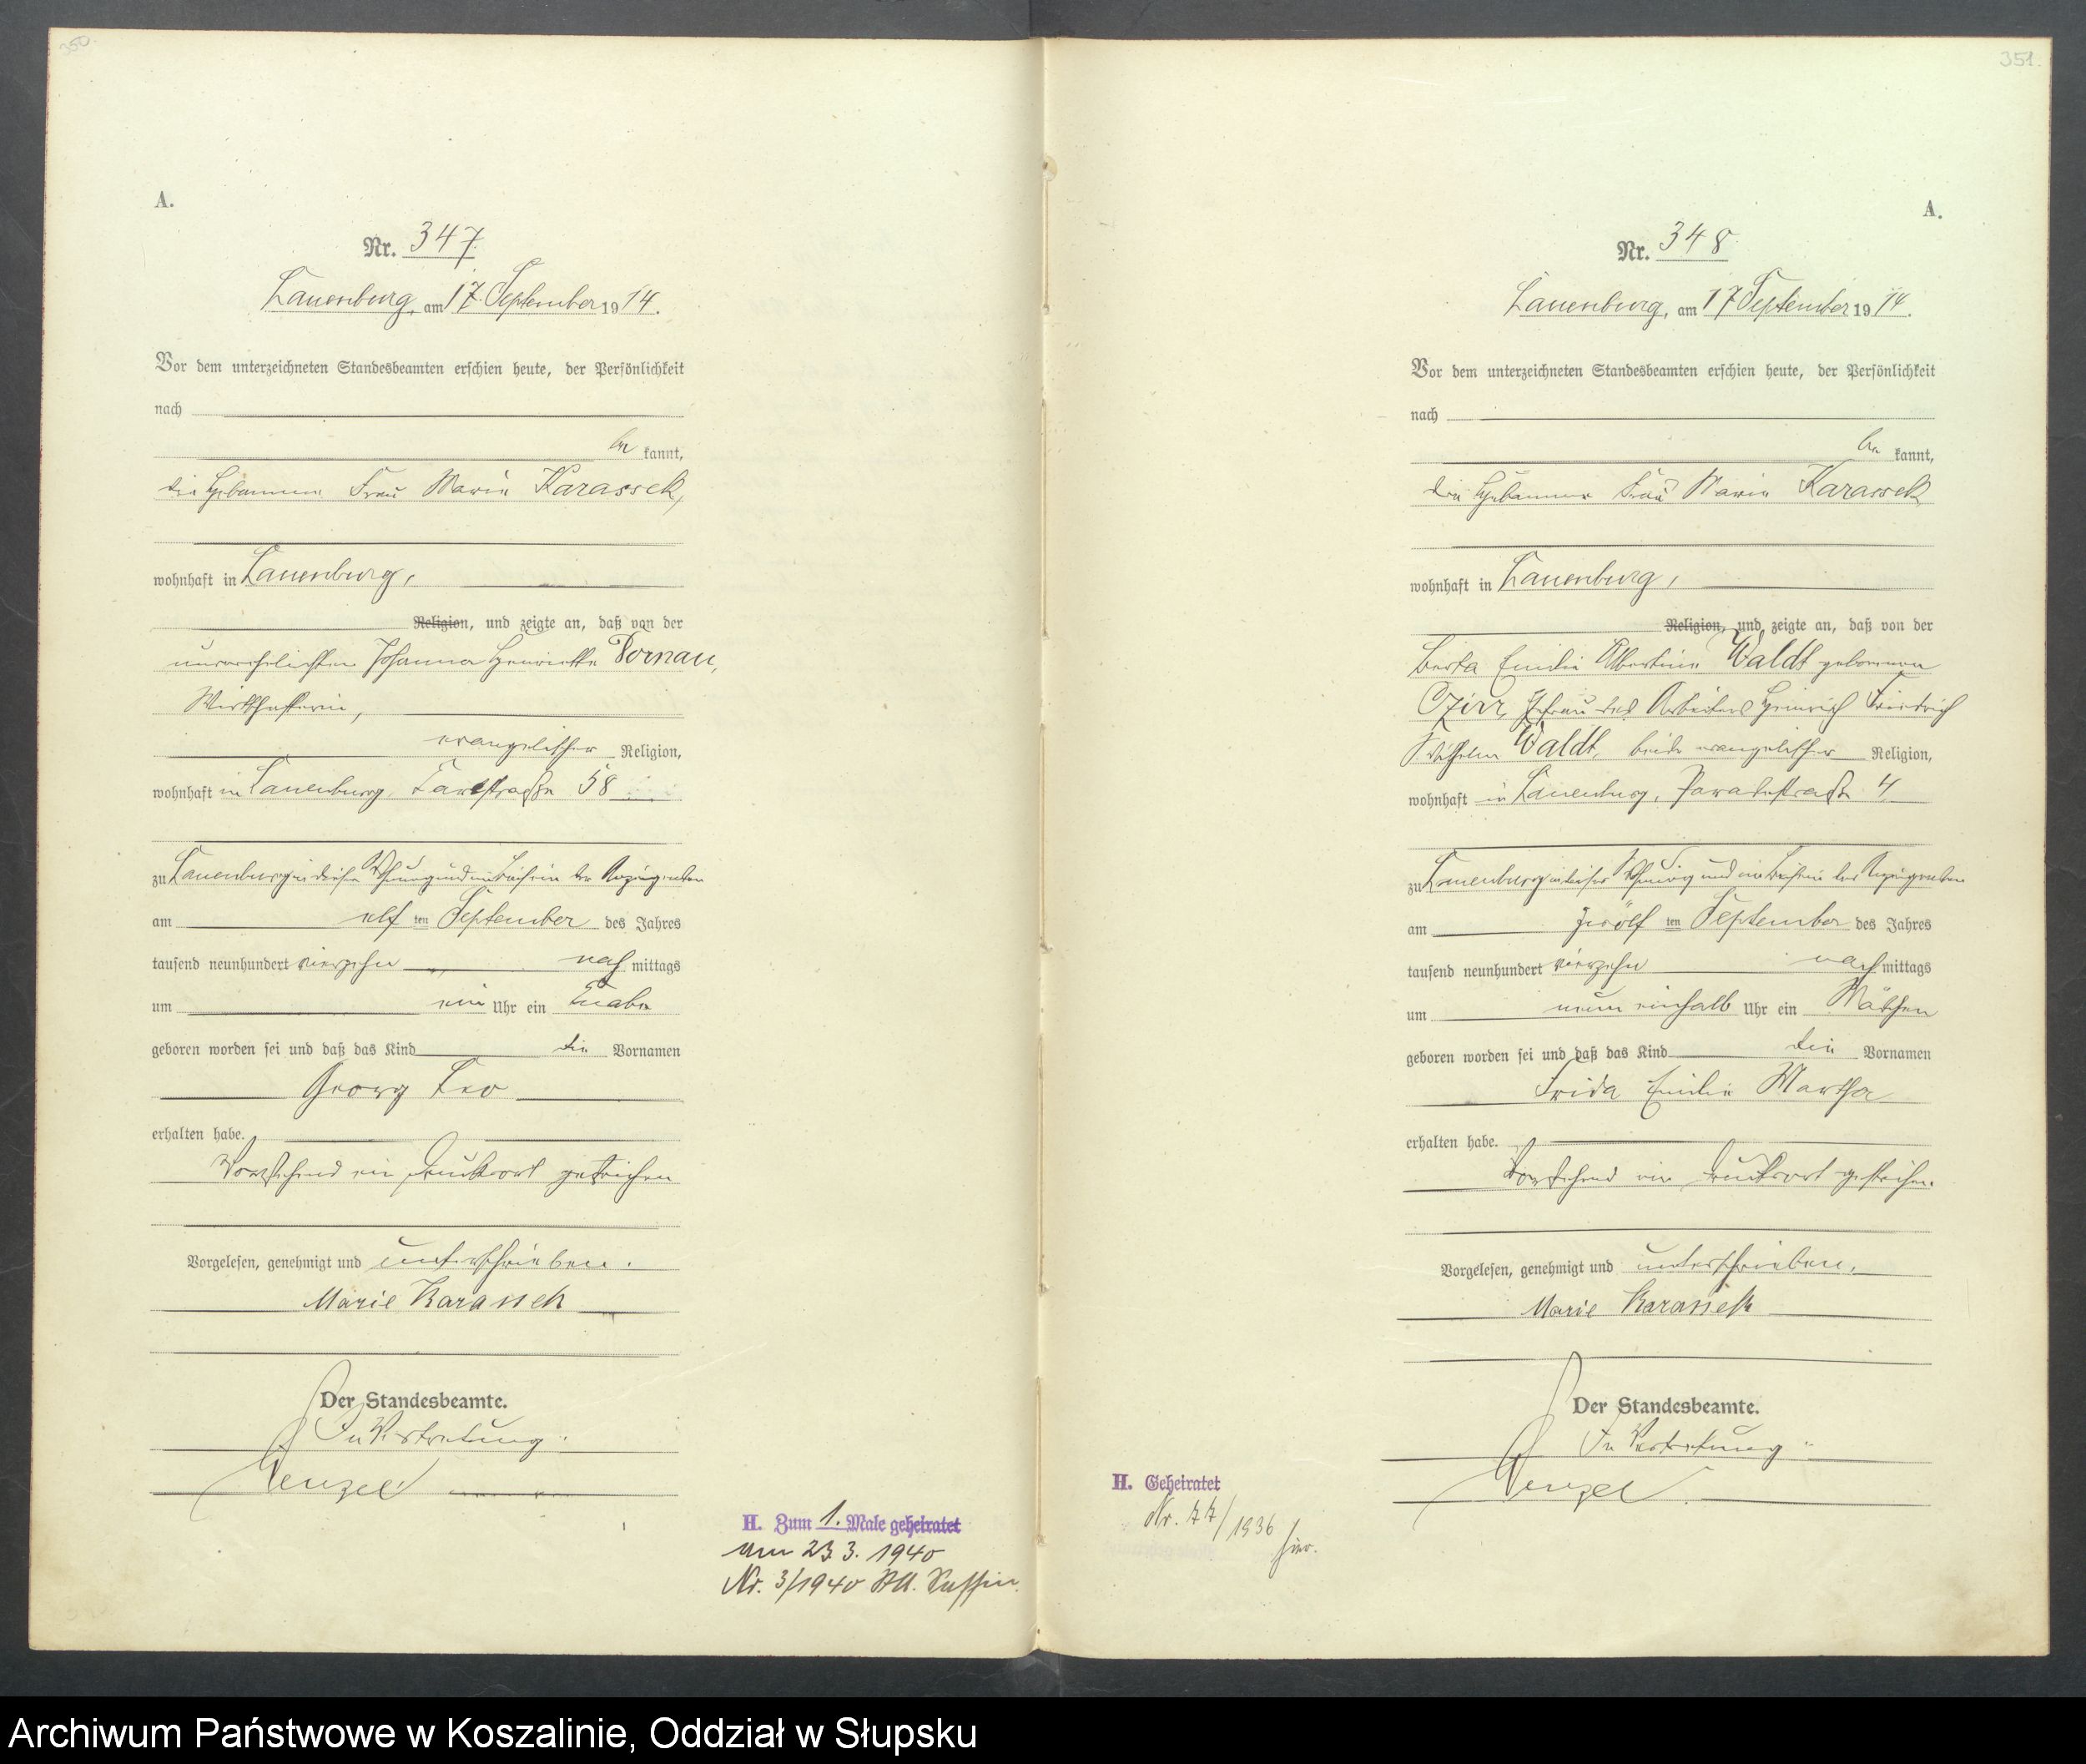 350.
A.
Nr. 347.
Lauenburg, am 17. September 1914.
Vor dem unterzeichneten Standesbeamten erschien heute, der Persönlichkeit
nach
be kannt,
die Hebamme Frau Marie Karassek,
wohnhaft in Lauenburg,
Religion, und zeigte an, daß von der
unverehelichten Johanna Henriette Pornau,
Wirthschafterin,
evangelischer Religion,
wohnhaft in Lauenburg, 58
zu Lauenburg in dieser Wohnung und im Beisein der Anzeigenden
am elf ten September des Jahres
tausend neunhundert vierzehn nach mittags
um ein Uhr ein Knabe
geboren worden sei und daß das Kind die Vornamen
Georg Leo
erhalten habe.
Vorstehend ein Druckwort gestrichen
Vorgelesen, genehmigt und unterschrieben.
Marie Karassek
Der Standesbeamte.
In Vertretung:
Wenzel
H. Zum 1. Male geheiratet
am 23 3. 1940
Nr. 3/1940 StA.
351.
A.
Nr. 348
Lauenburg, am 17 September 1914.
Vor dem unterzeichneten Standesbeamten erschien heute, der Persönlichkeit
nach
be kannt,
die Hebamme Frau Marie Karassek
wohnhaft in Lauenburg,
Religion, und zeigte an, daß von der
Berta Emilie Albertine Waldt geborenen
Czirr, Ehefrau des Arbeiters Heinrich Friedrich
Wilhelm Waldt, beide evangelischer Religion,
wohnhaft in Lauenburg, Paradestraße 4
zu Lauenburg in dieser Wohnung und im Beisein der Anzeigenden
am zwölf ten September des Jahres
tausend neunhundert vierzehn nach mittags
um neun einhalb Uhr ein Mädchen
geboren worden sei und daß das Kind die Vornamen
Frida Emilie Martha
erhalten habe.
Vorstehend ein Druckwort gestrichen.
Vorgelesen, genehmigt und unterschrieben.
Marie Karassek
Der Standesbeamte.
In Vertretung:
Wenzel.
H. Geheiratet
Nr. 77/1936
hier.
Archiwum Państwowe w Koszalinie, Oddział w Słupsku